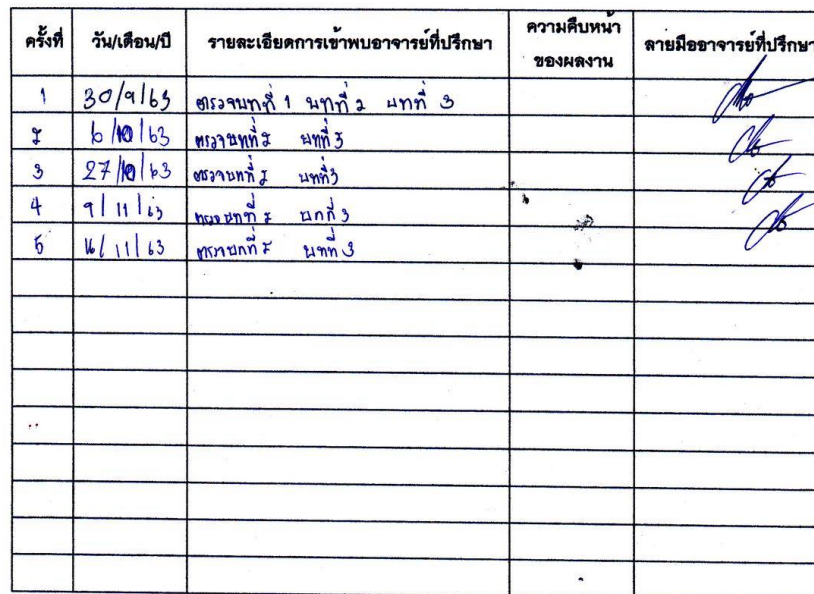 ครั้งที่ วัน/เดือน/ปี รายละเอียดการเข้าพบอาจารย์ที่ปรึกษา ความคืบหน้า ลายมืออาจารย์ที่ปรึกษา
ของผลงาน
1 30/9/63 ตรวจบทที่ 1 บทที่ 2 บทที่ 3
2 6/10/63 ตรวจบทที่ 2 บทที่ 3
3 27/10/63 ตรวจบทที่ 2 บทที่ 3
4 9/11/63 ตรวจบทที่ 2 บทที่ 3
5 16/11/63 ตรวจบทที่ 2 บทที่ 3